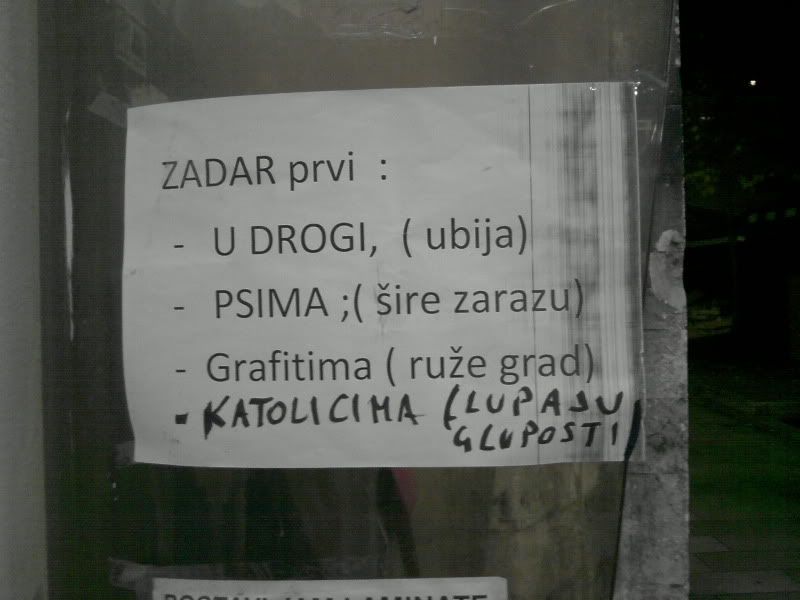 ZADAR prvi :
- U DROGI, ( ubija)
- PSIMA ;( šire zarazu)
- Grafitima ( ruže grad)
- KATOLICIMA (LUPAJU
GLUPOSTI)
LAMINATE